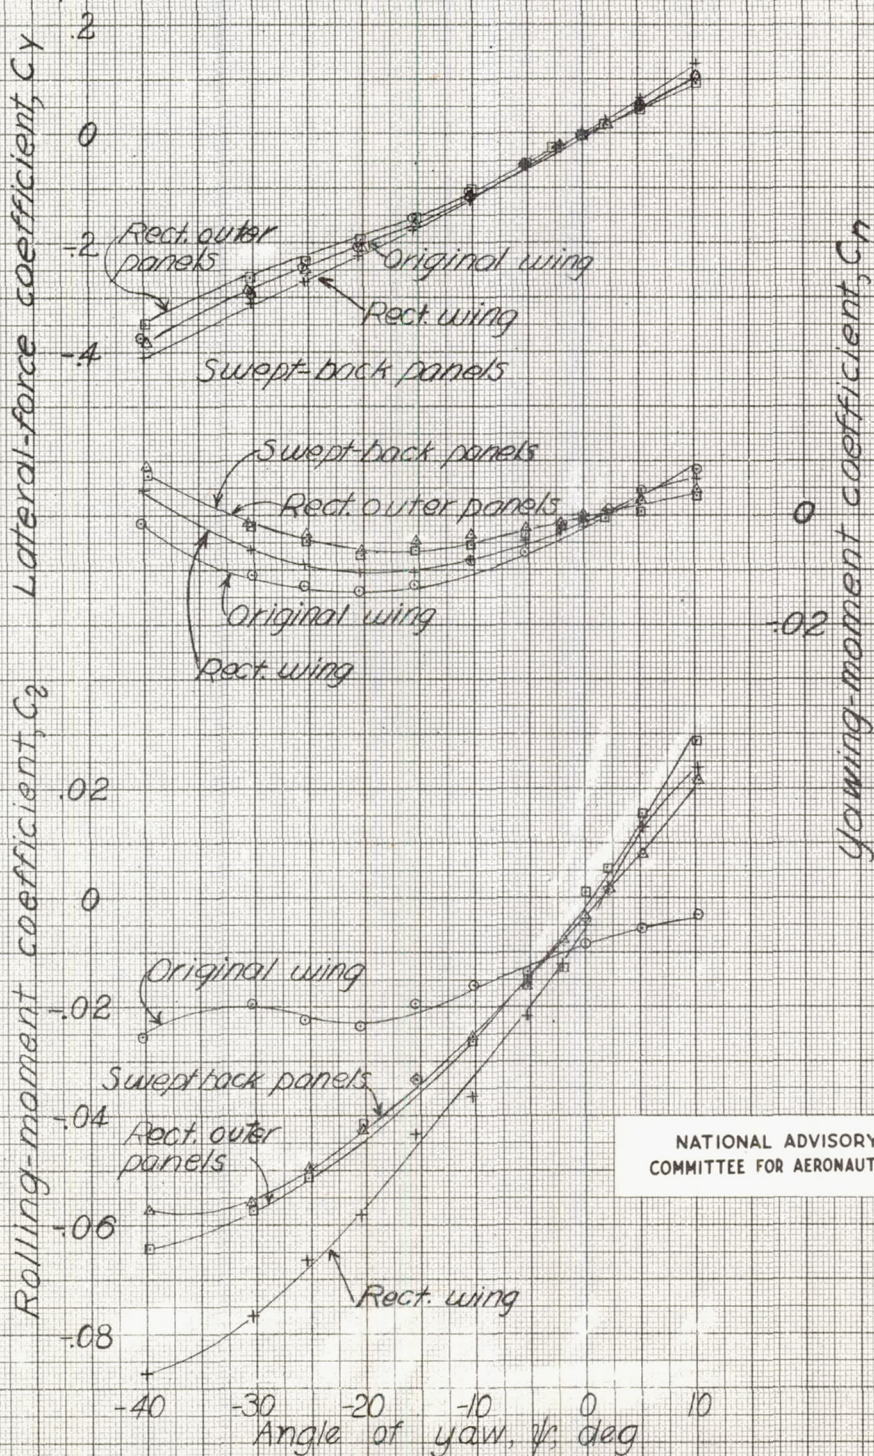 .2
Lateral-force coefficient, Cy
0
-.2
Rect. outer
panels
Original wing
Rect. wing
-.4
Swept-back panels
Swept-back panels
Rect. outer panels
Original wing
Rect. wing
Yawing-moment coefficient, Cn
0
-.02
Rollling-moment coefficient, Cl
.02
0
Original wing
-.02
Swept back panels
-.04
Rect. outer
panels
-.06
Rect. wing
-.08
NATIONAL ADVISORY
COMMITTEE FOR AERONAUT
-40 -30 -20 -10 0 10
Angle of yaw, ψ, deg